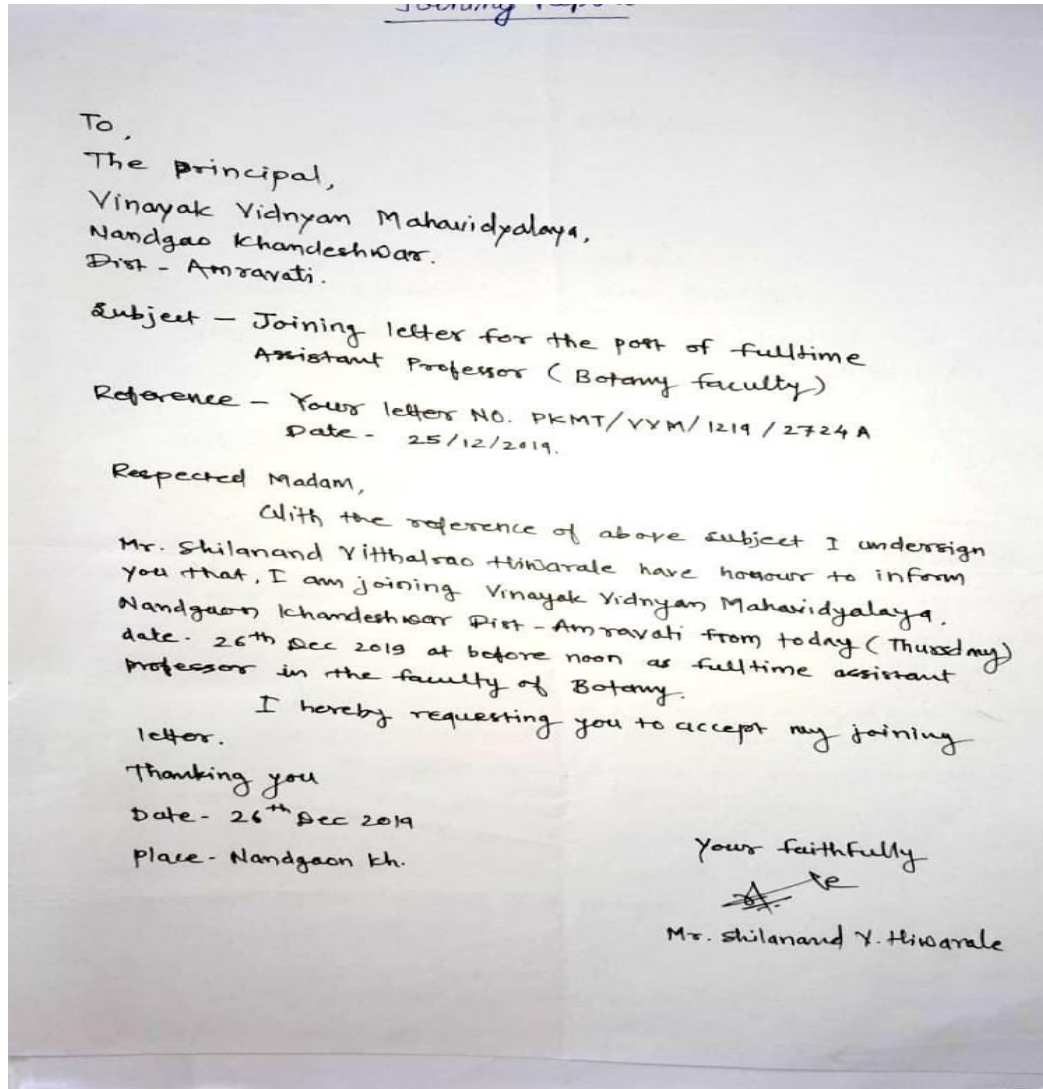 Joining Report
To,
The principal,
Vinayak Vidnyan Mahavidyalaya,
Nandgao Khandeshwar.
Dist - Amravati.
Subject - Joining letter for the post of fulltime
Assistant Professor (Botany faculty)
Reference - Your letter NO. PKMT/VVM/1219/2724A
Date - 25/12/2019.
Respected Madam,
With the reference of above subject I undersign
Mr. Shilanand Vitthalrao Hiwarale have honour to inform
you that, I am joining Vinayak Vidnyan Mahavidyalaya,
Nandgaon Khandeshwar Dist - Amravati from today (Thursday)
date. 26th Dec 2019 at before noon as fulltime assistant
professor in the faculty of Botany.
I hereby requesting you to accept my joining
letter.
Thanking you
Date - 26th Dec 2019
Place - Nandgaon Kh.
Your faithfully
Mr. Shilanand V. Hiwarale